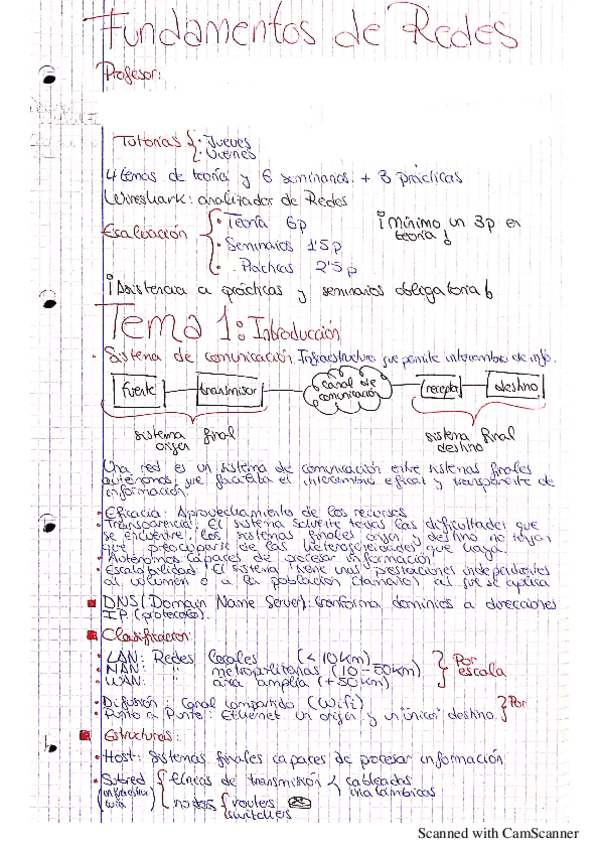 Fundamentos de Redes
Profesor:
Tutorías { · Jueves
· Viernes
4 temas de teoría y 6 seminarios. + 3 prácticas
Wireshark: analizador de Redes
Evaluación { · Teoría 6p ¡Mínimo un 3p en teoría!
· Seminarios 1'5 p
· Prácticas 2'5 p
¡Asistencia a prácticas y seminarios obligatoria!
Tema 1: Introducción
· Sistema de comunicación. Infraestructura que permite intercambio de info.
fuente transmisor canal de comunicación receptor destino
sistema final origen sistema final destino
Una red es un sistema de comunicación entre sistemas finales
autónomos que facilita el intercambio eficaz y transparente de
información.
· Eficacia: Aprovechamiento de los recursos
· Transparencia: El sistema solvente todas las dificultades que
se encuentre, los sistemas finales origen y destino no tengan
que preocuparse de las heterogeneidades que haya.
· Autónomos capaces de procesar información
· Escalabilidad: El sistema tiene unas prestaciones independientes
al volumen o a la población (tamaño) al que se aplica
DNS (Domain Name Server): conforma dominios a direcciones
IP (protocolo).
Clasificación:
· LAN: Redes locales (< 10 Km) } Por escala
· MAN: " metropolitanas (10-50Km)
· WAN: " área amplia (+50Km)
· Difusión: Canal compartido (Wifi) } Por
· Punto a Punto: Ethernet un origen y un "único" destino.
Estructuras:
· Host: Sistemas finales capaces de procesar información
· Subred { líneas de transmisión < cableadas
inalámbricas
nodos { routers
switchers
Scanned with CamScanner